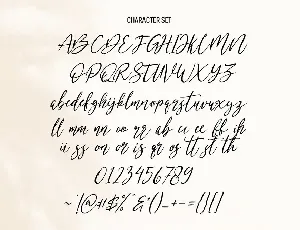 CHARACTER SET
ABCDEFGHIJKLMN
OPQRSTUVWXYZ
abcdefghijklmnopqrstuvwxyz
ll mm nn oo rr ab
ss on or is
tt st th
0123456789
~`!@#$%^&*()_+-=[]